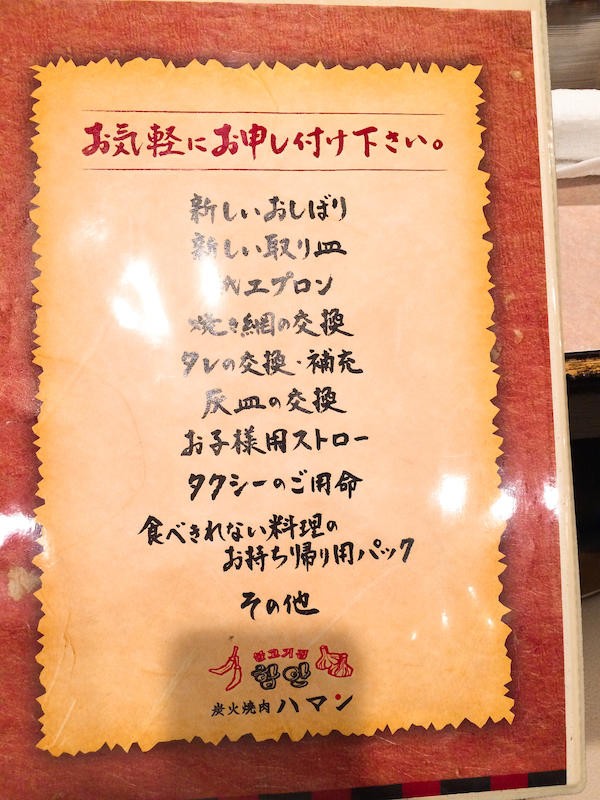 お気軽にお申し付け下さい。
新しいおしぼり
新しい取り皿
紙エプロン
焼き網の交換
タレの交換・補充
灰皿の交換
お子様用ストロー
タクシーのご用命
食べきれない料理の
お持ち帰り用パック
その他
불고기집
함안
炭火焼肉ハマン